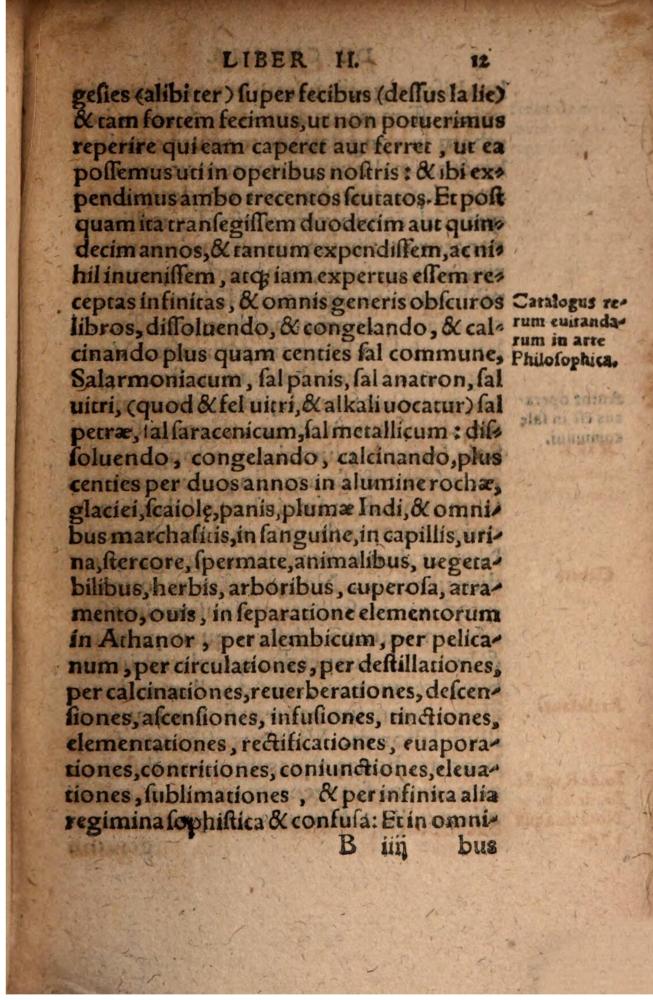 LIBER II. 12
gesies (alibi ter) super fecibus (dessus la lie)
& tam fortem fecimus, ut non potuerimus
reperire qui eam caperet aut ferret, ut ea
possemus uti in operibus nostris: & ibi ex-
pendimus ambo trecentos scutatos. Et post
quam ita transegissem duodecim aut quin-
decim annos, & tantum expendissem, ac ni-
hil inuenissem, atq; iam expertus essem re-
ceptas infinitas, & omnis generis obscuros
libros, dissoluendo, & congelando, & cal-
cinando plus quam centies sal commune,
Salarmoniacum, sal panis, sal anatron, sal
uitri, (quod & fel uitri, & alkali uocatur) sal
petræ, sal saracenicum, sal metallicum: dis-
soluendo, congelando, calcinando, plus
centies per duos annos in alumine rochæ,
glaciei, scaiolę, panis, plumæ Indi, & omni-
bus marchasitis, in sanguine, in capillis, uri-
na, stercore, spermate, animalibus, uegeta-
bilibus, herbis, arboribus, cuperosa, atra-
mento, ouis, in separatione elementorum
in Athanor, per alembicum, per pelica-
num, per circulationes, per destillationes,
per calcinationes, reuerberationes, descen-
siones, ascensiones, infusiones, tinctiones,
elementationes, rectificationes, euapora-
tiones, contritiones, coniunctiones, eleua-
tiones, sublimationes, & per infinita alia
regimina sophistica & confusa: Et in omni-
B iiij bus
Catalogus re-
rum euitanda-
rum in arte
Philosophica.